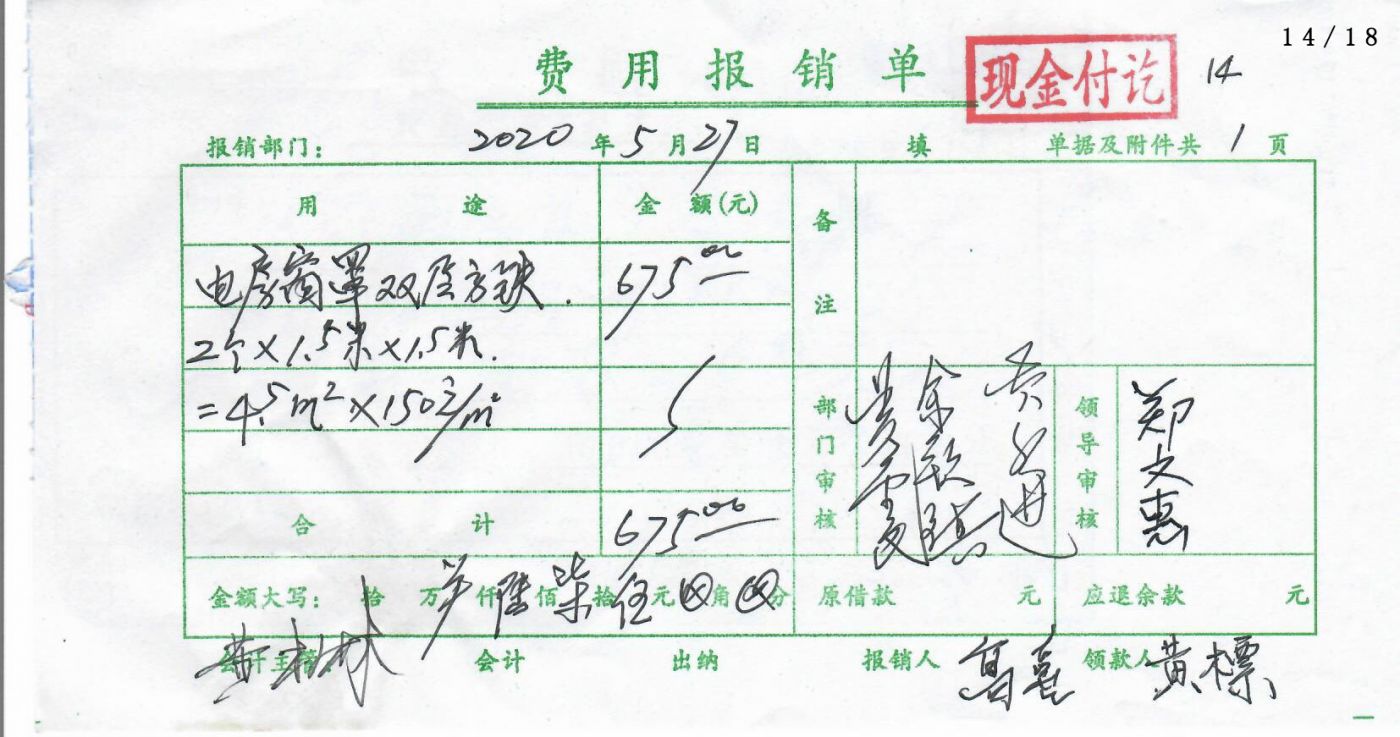 14/18
费用报销单 现金付讫 14
报销部门： 2020年5月27日 填 单据及附件共 1 页
用途 金额(元) 备注
电房窗罩双层方铁. 675.00
2个×1.5米×1.5米.
=4.5m²×150元/m²
部门审核 领导审核 郑文惠
合计 675.00
金额大写： 拾 万 仟 陆佰 柒拾 伍元 ⊗角 ⊗分 原借款 元 应退余款 元
会计主管 会计 出纳 报销人 领款人 黄标